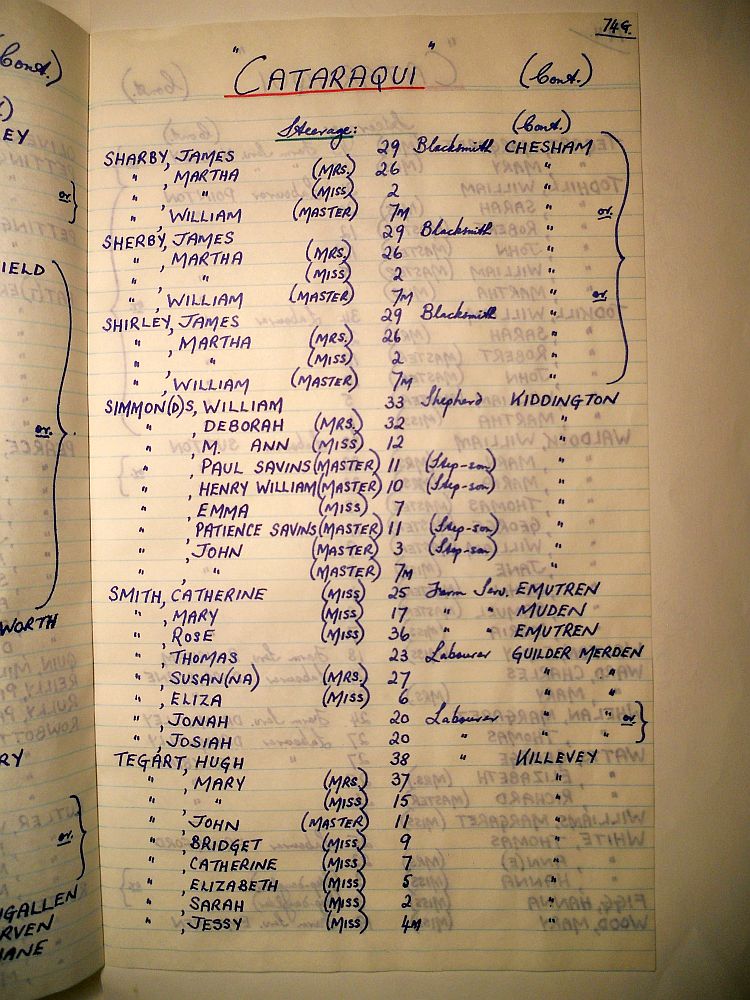 74G.
"CATARAQUI" (Cont.)
Steerage: (Cont.)
SHARBY, JAMES 29 Blacksmith CHESHAM
" , MARTHA (MRS.) 26 "
" , " (MISS) 2 "
" , WILLIAM (MASTER) 7M " or.
SHERBY, JAMES 29 Blacksmith "
" , MARTHA (MRS.) 26 "
" , " (MISS) 2 "
" , WILLIAM (MASTER) 7M " or.
SHIRLEY, JAMES 29 Blacksmith "
" , MARTHA (MRS.) 26 "
" , " (MISS) 2 "
" , WILLIAM (MASTER) 7M "
SIMMON(D)S, WILLIAM 33 Shepherd KIDDINGTON
" , DEBORAH (MRS.) 32 "
" , M. ANN (MISS) 12 "
" , PAUL SAVINS (MASTER) 11 (Step-son) "
" , HENRY WILLIAM (MASTER) 10 (Step-son) "
" , EMMA (MISS) 7 "
" , PATIENCE SAVINS (MASTER) 11 (Step-son) "
" , JOHN (MASTER) 3 (Step-son) "
" , " (MASTER) 7M "
SMITH, CATHERINE (MISS) 25 Farm Serv. EMUTREN
" , MARY (MISS) 17 " " MUDEN
" , ROSE (MISS) 36 " " EMUTREN
" , THOMAS 23 Labourer GUILDER MERDEN
" , SUSAN(NA) (MRS.) 27 " "
" , ELIZA (MISS) 6 " "
" , JONAH 20 Labourer " " or.
" , JOSIAH 20 " " "
TEGART, HUGH 38 " KILLEVEY
" , MARY (MRS.) 37 "
" " (MISS) 15 "
" , JOHN (MASTER) 11 "
" , BRIDGET (MISS) 9 "
" , CATHERINE (MISS) 7 "
" , ELIZABETH (MISS) 5 "
" , SARAH (MISS) 2 "
" , JESSY (MISS) 4M "
(Cont.)
EY
or.
IELD
or.
WORTH
RY
or.
GALLEN
RVEN
ANE